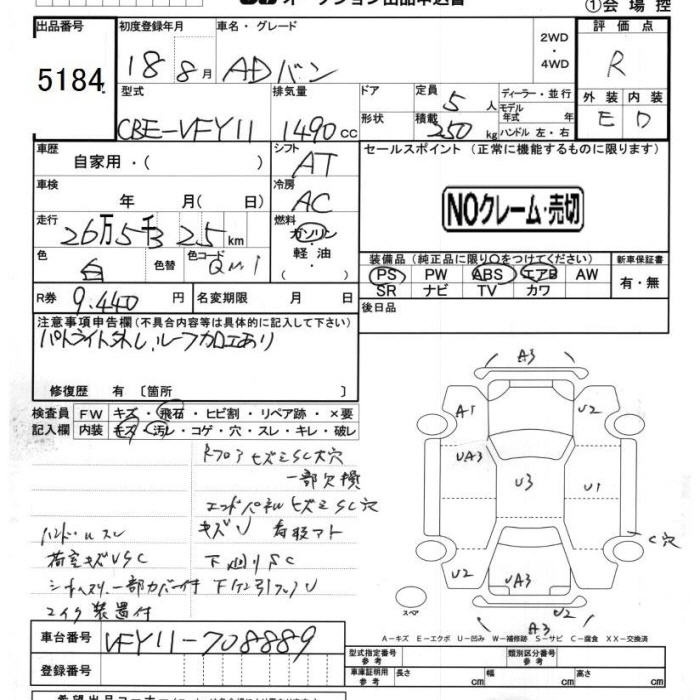 オークション出品申込書 ①会場控
出品番号 初度登録年月 車名・グレード 2WD・4WD 評価点
5184 18 8月 ADバン R
型式 排気量 ドア 定員 5人 ディーラー・並行 外装 内装
CBE-VFY11 1490cc 形状 積載 250kg モデル年式 年 ハンドル 左・右 E D
車歴 自家用・( ) シフト AT セールスポイント (正常に機能するものに限ります)
車検 年 月( 日) 冷房 AC NOクレーム・売切
走行 26万5千325km 燃料 ガソリン・軽油・
色 白 色替 色コード QM1 装備品 (純正品に限り○をつけてください) 新車保証書
PS PW ABS エアB AW 有・無
SR ナビ TV カワ
R券 9.440円 名変期限 月 日 後日品
注意事項申告欄 (不具合内容等は具体的に記入して下さい)
パトライト外し、ルーフカロエあり
修復歴 有 〔箇所 〕
検査員 FW キズ・飛石・ヒビ割・リペア跡・×要
記入欄 内装 キズ・汚レ・コゲ・穴・スレ・キレ・破レ
RフロアヒズミSC大穴
一部欠損
エンドパネルヒズミSC穴
ハンドルスレ キズU 看板アト
荷室キズUSC 下廻りSC
一部カバー付
マイク装置付
A3
A1 U2
UA3
U3 U1
C穴
U2 UA3
U2
スペア A3
A-キズ E-エクボ U-凹み W-補修跡 S-サビ C-腐食 XX-交換済
車台番号 VFY11-708889 型式指定番号 参考 類別区分番号 参考
登録番号 車庫証明用 参考 長さ cm 幅 cm 高さ cm